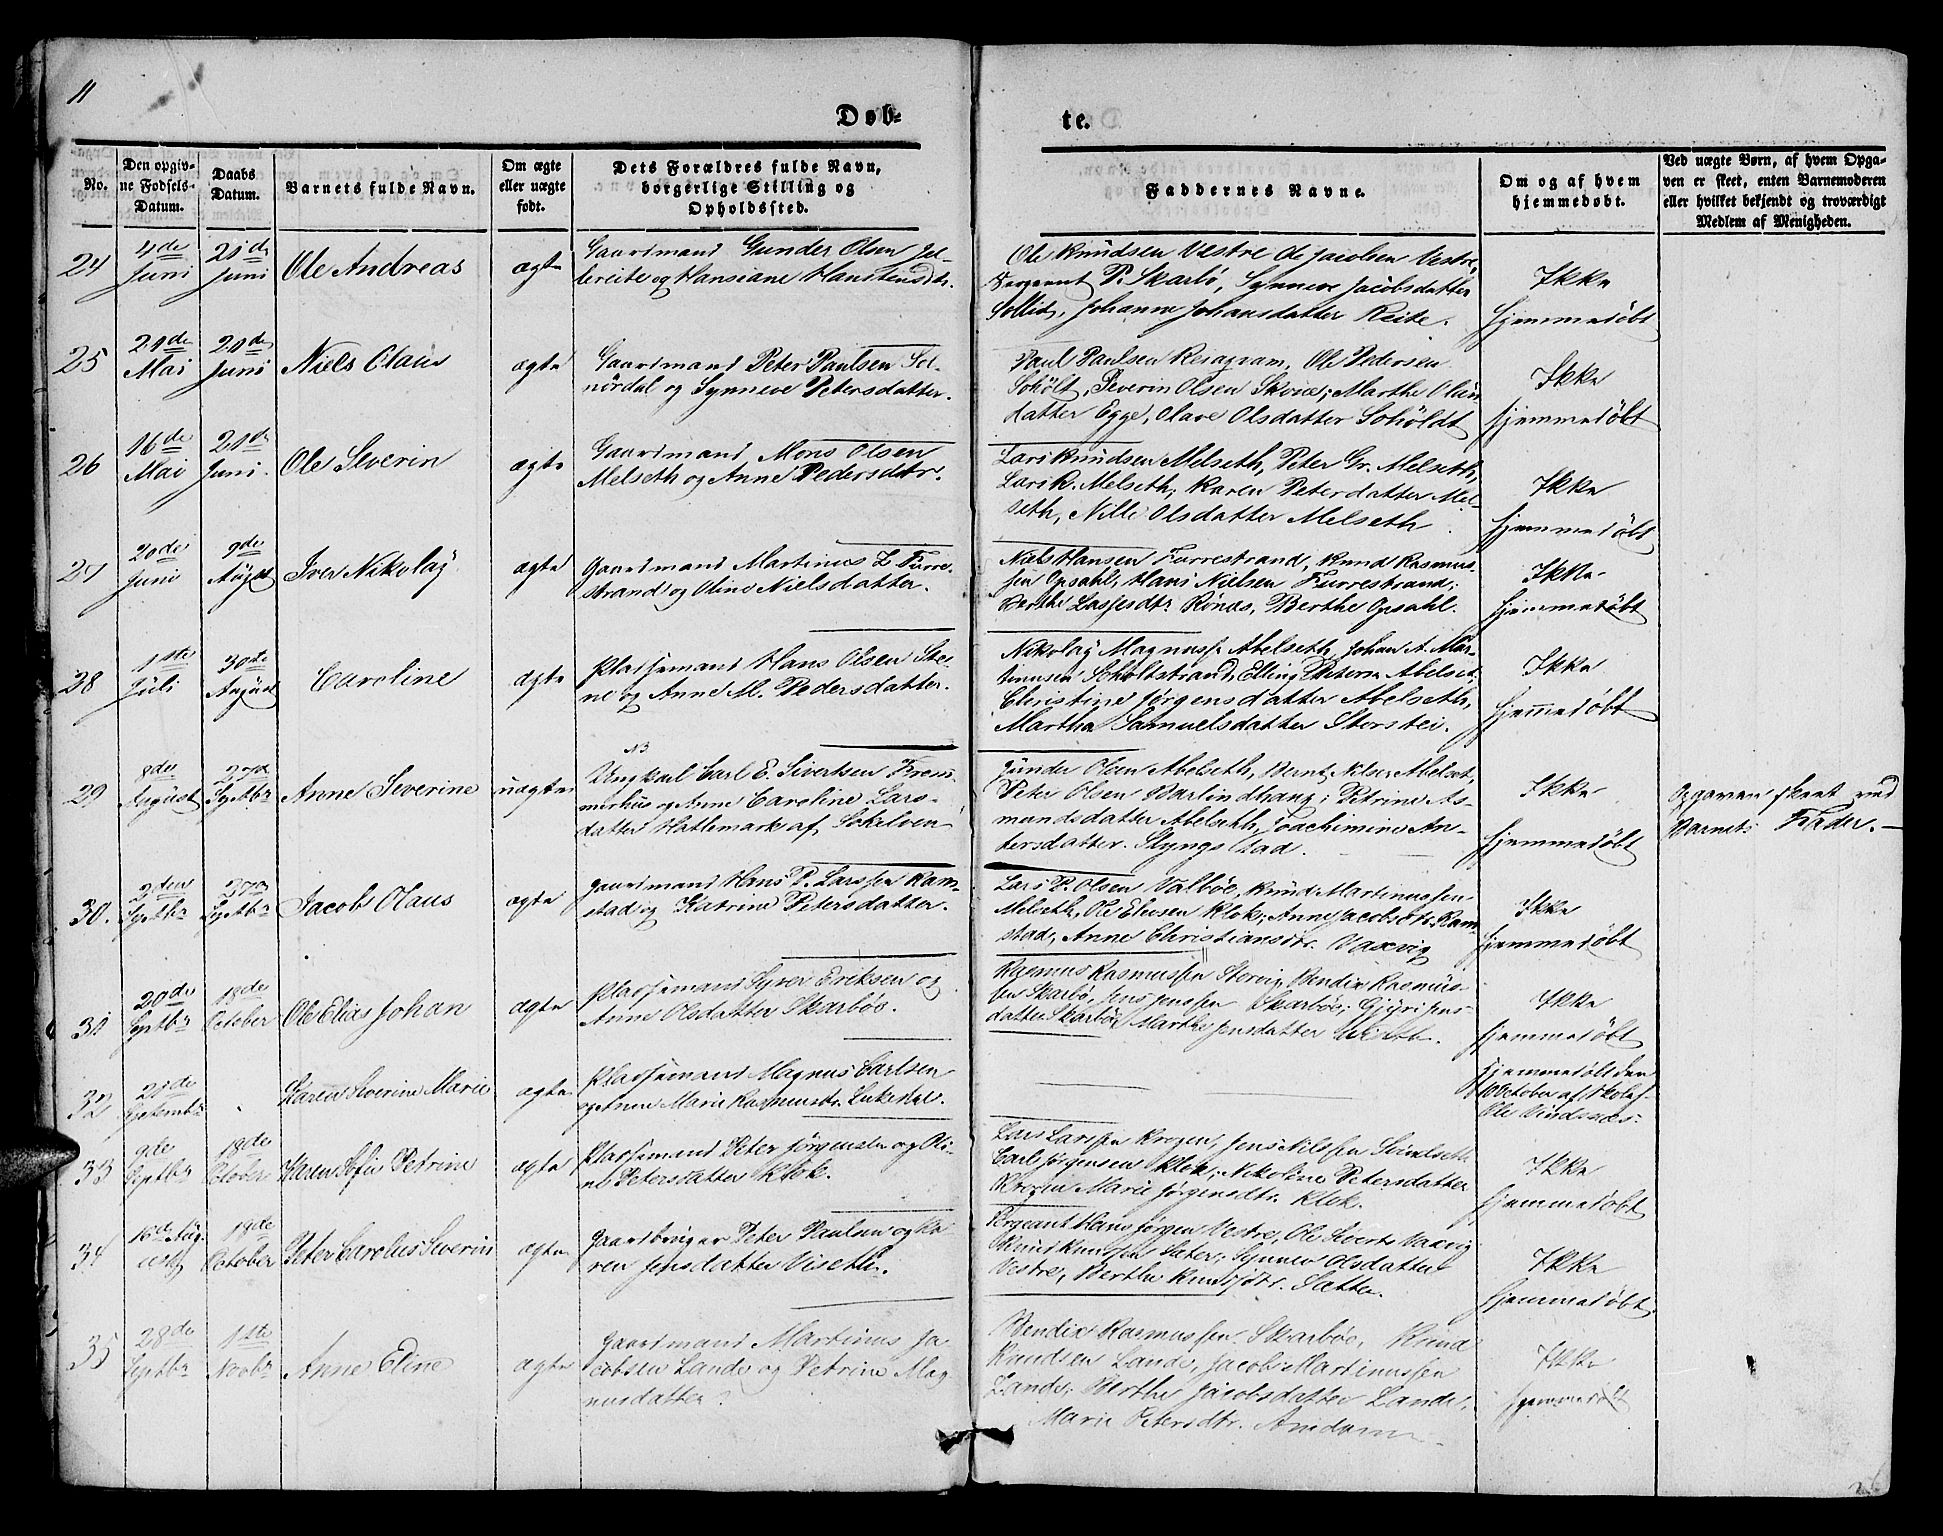 11
Døb-
te.
No.
Den opgiv-
ne Fødsels-
Datum.
Daabs
Datum.
Barnets fulde Navn.
Om ægte
eller uægte
født.
Dets Forældres fulde Navn,
borgerlige Stilling og
Opholdssted.
Faddernes Navne.
Om og af hvem
hjemmedøbt.
Ved uægte Børn, af hvem Opga-
ven er skeet, enten Barnemoderen
eller hvilket bekjendt og troværdigt
Medlem af Menigheden.
24
4de
Juni
21de
Juni
Ole Andreas
ægte
Gaardmand Gunder Olsen
og Hansiane
Ole Knudsen Vestre Ole Jacobsen Vestre,
Sergeant P. Skarbø, Synneve Jacobsdatter
Sollid, Johanne Johansdatter Reite.
Ikke
hjemmedøbt
25
Mai
Juni
Niels Olaus
ægte
Gaardmand Peter Paulsen Sol-
nørdal og Synneve Petersdatter.
Paul Paulsen Ole Pedersen
Soholt, Severin Olsen Marthe
datter Egge, Olave Olsdatter Soholdt
Ikke
hjemmedøbt
26
16de
Mai
21de
Juni.
Ole Severin
ægte
Gaardmand Mons Olsen
Melseth og Anne Pedersdtr.
Lars Knudsen Melseth, Peter Gr. Melseth,
Lars K. Melseth, Karen Petersdatter Mel-
seth, Nille Olsdatter Melseth
Ikke
hjemmedøbt
27
20de
Juni
9de
August
Iver Nikolay
ægte
Gaardmand Martinus L Furre-
strand og Oline Nielsdatter.
Niels Hansen Furrestrand, Knud Rasmus-
sen Opsahl, Hans Nielsen Furrestrand;
Berthe Lassesdtr. Rønæs, Berthe Opsahl.
Ikke
hjemmedøbt
28
1ste
Juli
30te
August
Caroline
ægte
Pladsemand Hans Olsen Stei-
ne og Anne M. Pedersdatter.
Nikolay Magnuss. Abelseth, Johan A. Mar-
tinusen Soholtstrand, Elling Petersen Abelset,
Christine Jørgensdatter Abelseth,
Martha Samuelsdatter Storstei.
Ikke
hjemmedøbt
29
8de
August
27d
Septbr
Anne Severine
uægte
NB
Ungkarl Carl E. Sivertsen Frem-
merhus og Anne Caroline Lars-
datter Hatlemark af Sokelven
Gunder Olsen Abelseth, Bernt Nilsen Abelset,
Peter Olsen Barlindhaug; Petrine As-
mundsdatter Abelseth, Joachimine An-
dersdatter Slyngstad.
Ikke
hjemmedøbt
Opgaven skeet ved
Barnets Fader.
30.
2den
Septbr
27de
Septbr
Jacob Olaus
ægte
Gaardmand Hans P. Larssen Ram-
stad og Katrine Petersdatter.
Lars P. Olsen Valbøe, Knud Martinussen
Melseth, Ole Klok; Anne Jacobsdtr. Ram-
stad, Anne Christiansdtr. Vaxvig
Ikke
hjemmedøbt
31
20de
Septbr
18de
October
Ole Elias Johan
ægte
Pladsemand Syver Eriksen og
Anne Olsdatter Skarbøe.
Rasmus Rasmussen Storvig, Bendix Rasmus-
sen Skarbø, Jens Jenssen Skarbøe; Gjøri Jens-
datter Skarbøe, Marthe Jensdatter
Ikke
hjemmedøbt
32
21de
Septembr
Karen Severine Marie
ægte
Pladsemand Magnus Carlsen
og Anne Marie Rasmusdtr.
hjemmedøbt den
October af Skolel.
Ole Vindsnæs
33
9de
Septbr
18de
October
Karen Sofie Petrine
ægte
Pladsemand Peter Jørgensen og Oli-
ne Petersdatter Klok.
Lars Larssen Krogen, Jens Nilssen
Carl Jørgensen Klok; Nikoline Petersdatter
Krogen Marie Jørgensdtr. Klok.
Ikke
hjemmedøbt
34
16de Aug-
ust
18de
October
Peter Carolus Severin
ægte
Gaardbruger Peter Paulsen og Ka-
ren Jensdatter Viseth.
Sergeant Hans Jørgen Vestre, Ole Siverts Vaxvig
Knud Knudsen Sæter; Synneve Olsdatter
Vestre, Berthe Knudsdtr. Sætter.
Ikke
hjemmedøbt.
35
28de
Septbr
1ste
Novbr
Anne Eline
ægte
Gaardmand Martinus Ja-
cobsen Lande og Petrine Mag-
nusdatter
Bendix Rasmussen Skarbøe, Knud
Knudsen Lande, Jacob Martinussen
Lande; Berthe Jacobsdatter Lande,
Marie Petersdtr. Amdam
Ikke
hjemmedøbt